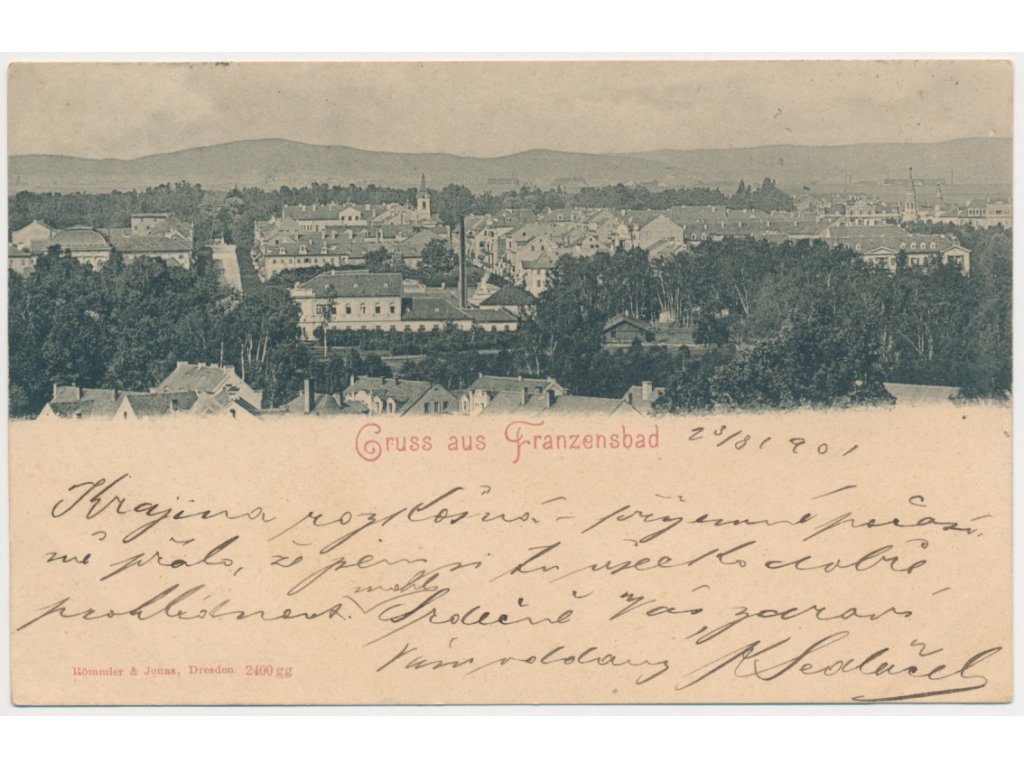 Gruss aus Franzensbad 23/8 1901
Krajina rozkošná – příjemné počasí
mě přálo, že jsem si tu všecko dobře
mohls
prohlédnout. Srdečně Vás zdraví
Vám oddaný K Sedláček
Römmler & Jonas, Dresden. 2400 gg